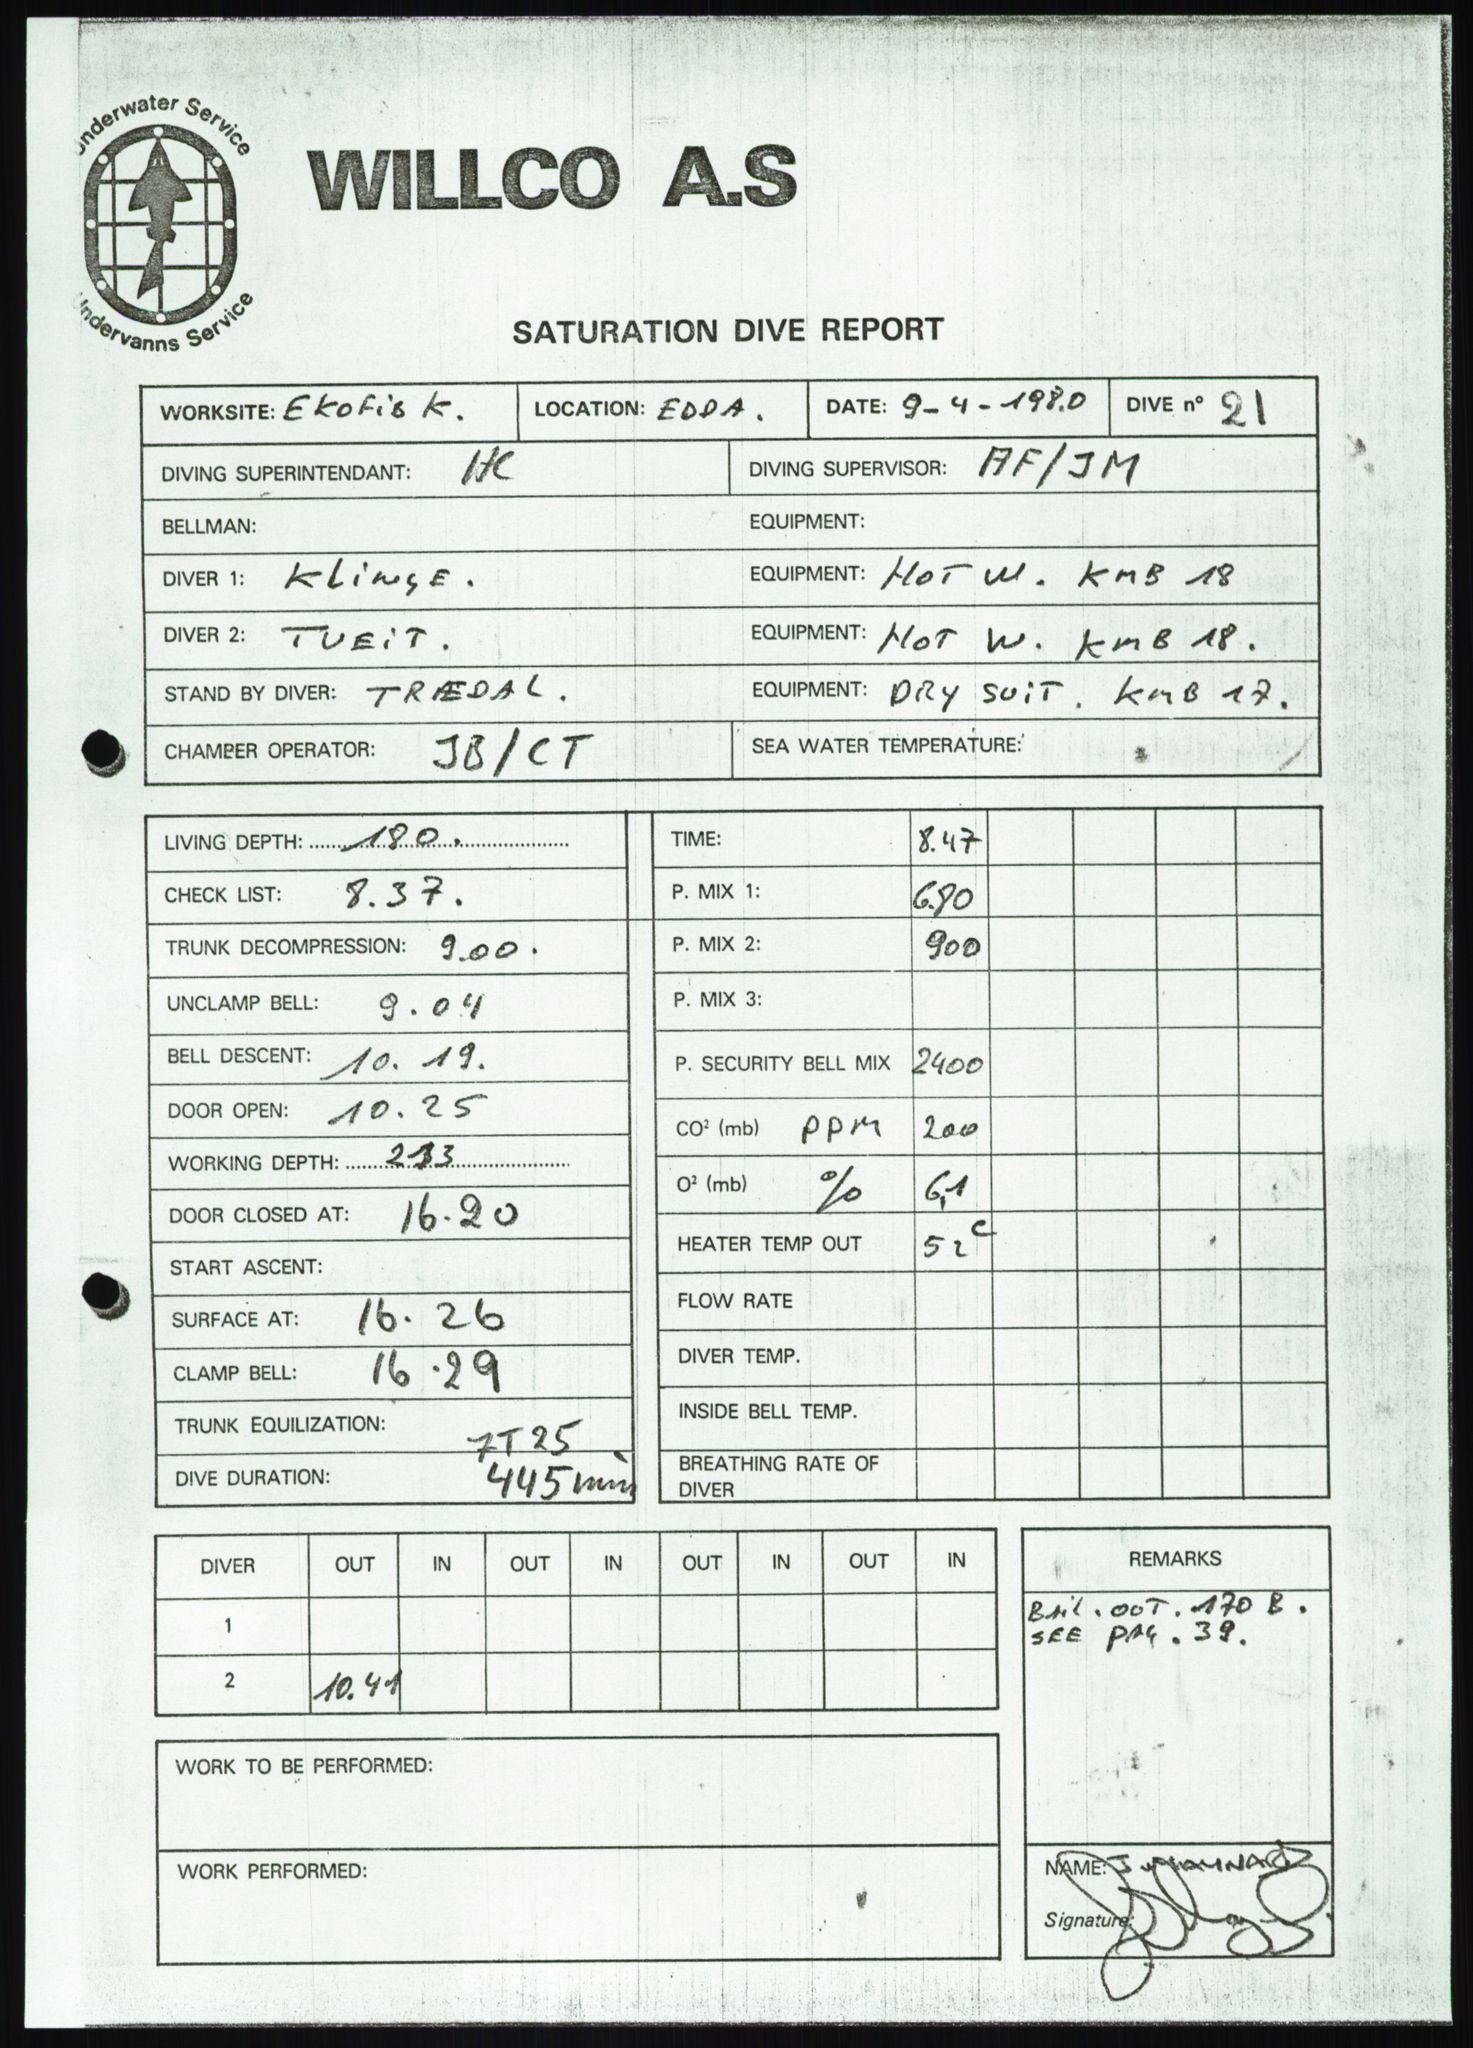 Underwater Service
Undervanns Service
WILLCO A.S
SATURATION DIVE REPORT
WORKSITE: EKOFISK. LOCATION: EDDA. DATE: 9-4-1980 DIVE n° 21
DIVING SUPERINTENDANT: HC DIVING SUPERVISOR: AF/JM
BELLMAN: EQUIPMENT:
DIVER 1: KLINGE. EQUIPMENT: HOT W. KMB 18
DIVER 2: TVEIT. EQUIPMENT: HOT W. KMB 18.
STAND BY DIVER: TRÆDAL. EQUIPMENT: DRY SUIT. KMB 17.
CHAMPER OPERATOR: JB/CT SEA WATER TEMPERATURE:
LIVING DEPTH: 180. TIME: 8.47
CHECK LIST: 8.37. P. MIX 1:
TRUNK DECOMPRESSION: 9.00. P. MIX 2: 900
UNCLAMP BELL: 9.04 P. MIX 3:
BELL DESCENT: 10.19. P. SECURITY BELL MIX 2400
DOOR OPEN: 10.25 CO² (mb) PPM 200
WORKING DEPTH: O² (mb) % 6,1
DOOR CLOSED AT: 16.20 HEATER TEMP OUT 52 C
START ASCENT: FLOW RATE
SURFACE AT: 16.26 DIVER TEMP.
CLAMP BELL: 16.29 INSIDE BELL TEMP.
TRUNK EQUILIZATION: BREATHING RATE OF
7T25 DIVER
DIVE DURATION: 445 min
DIVER OUT IN OUT IN OUT IN OUT IN REMARKS
1 Bail.OUT.170 B.
SEE PAG. 39.
2 10.41
WORK TO BE PERFORMED:
WORK PERFORMED: NAME: J. MAYNARD
Signature: